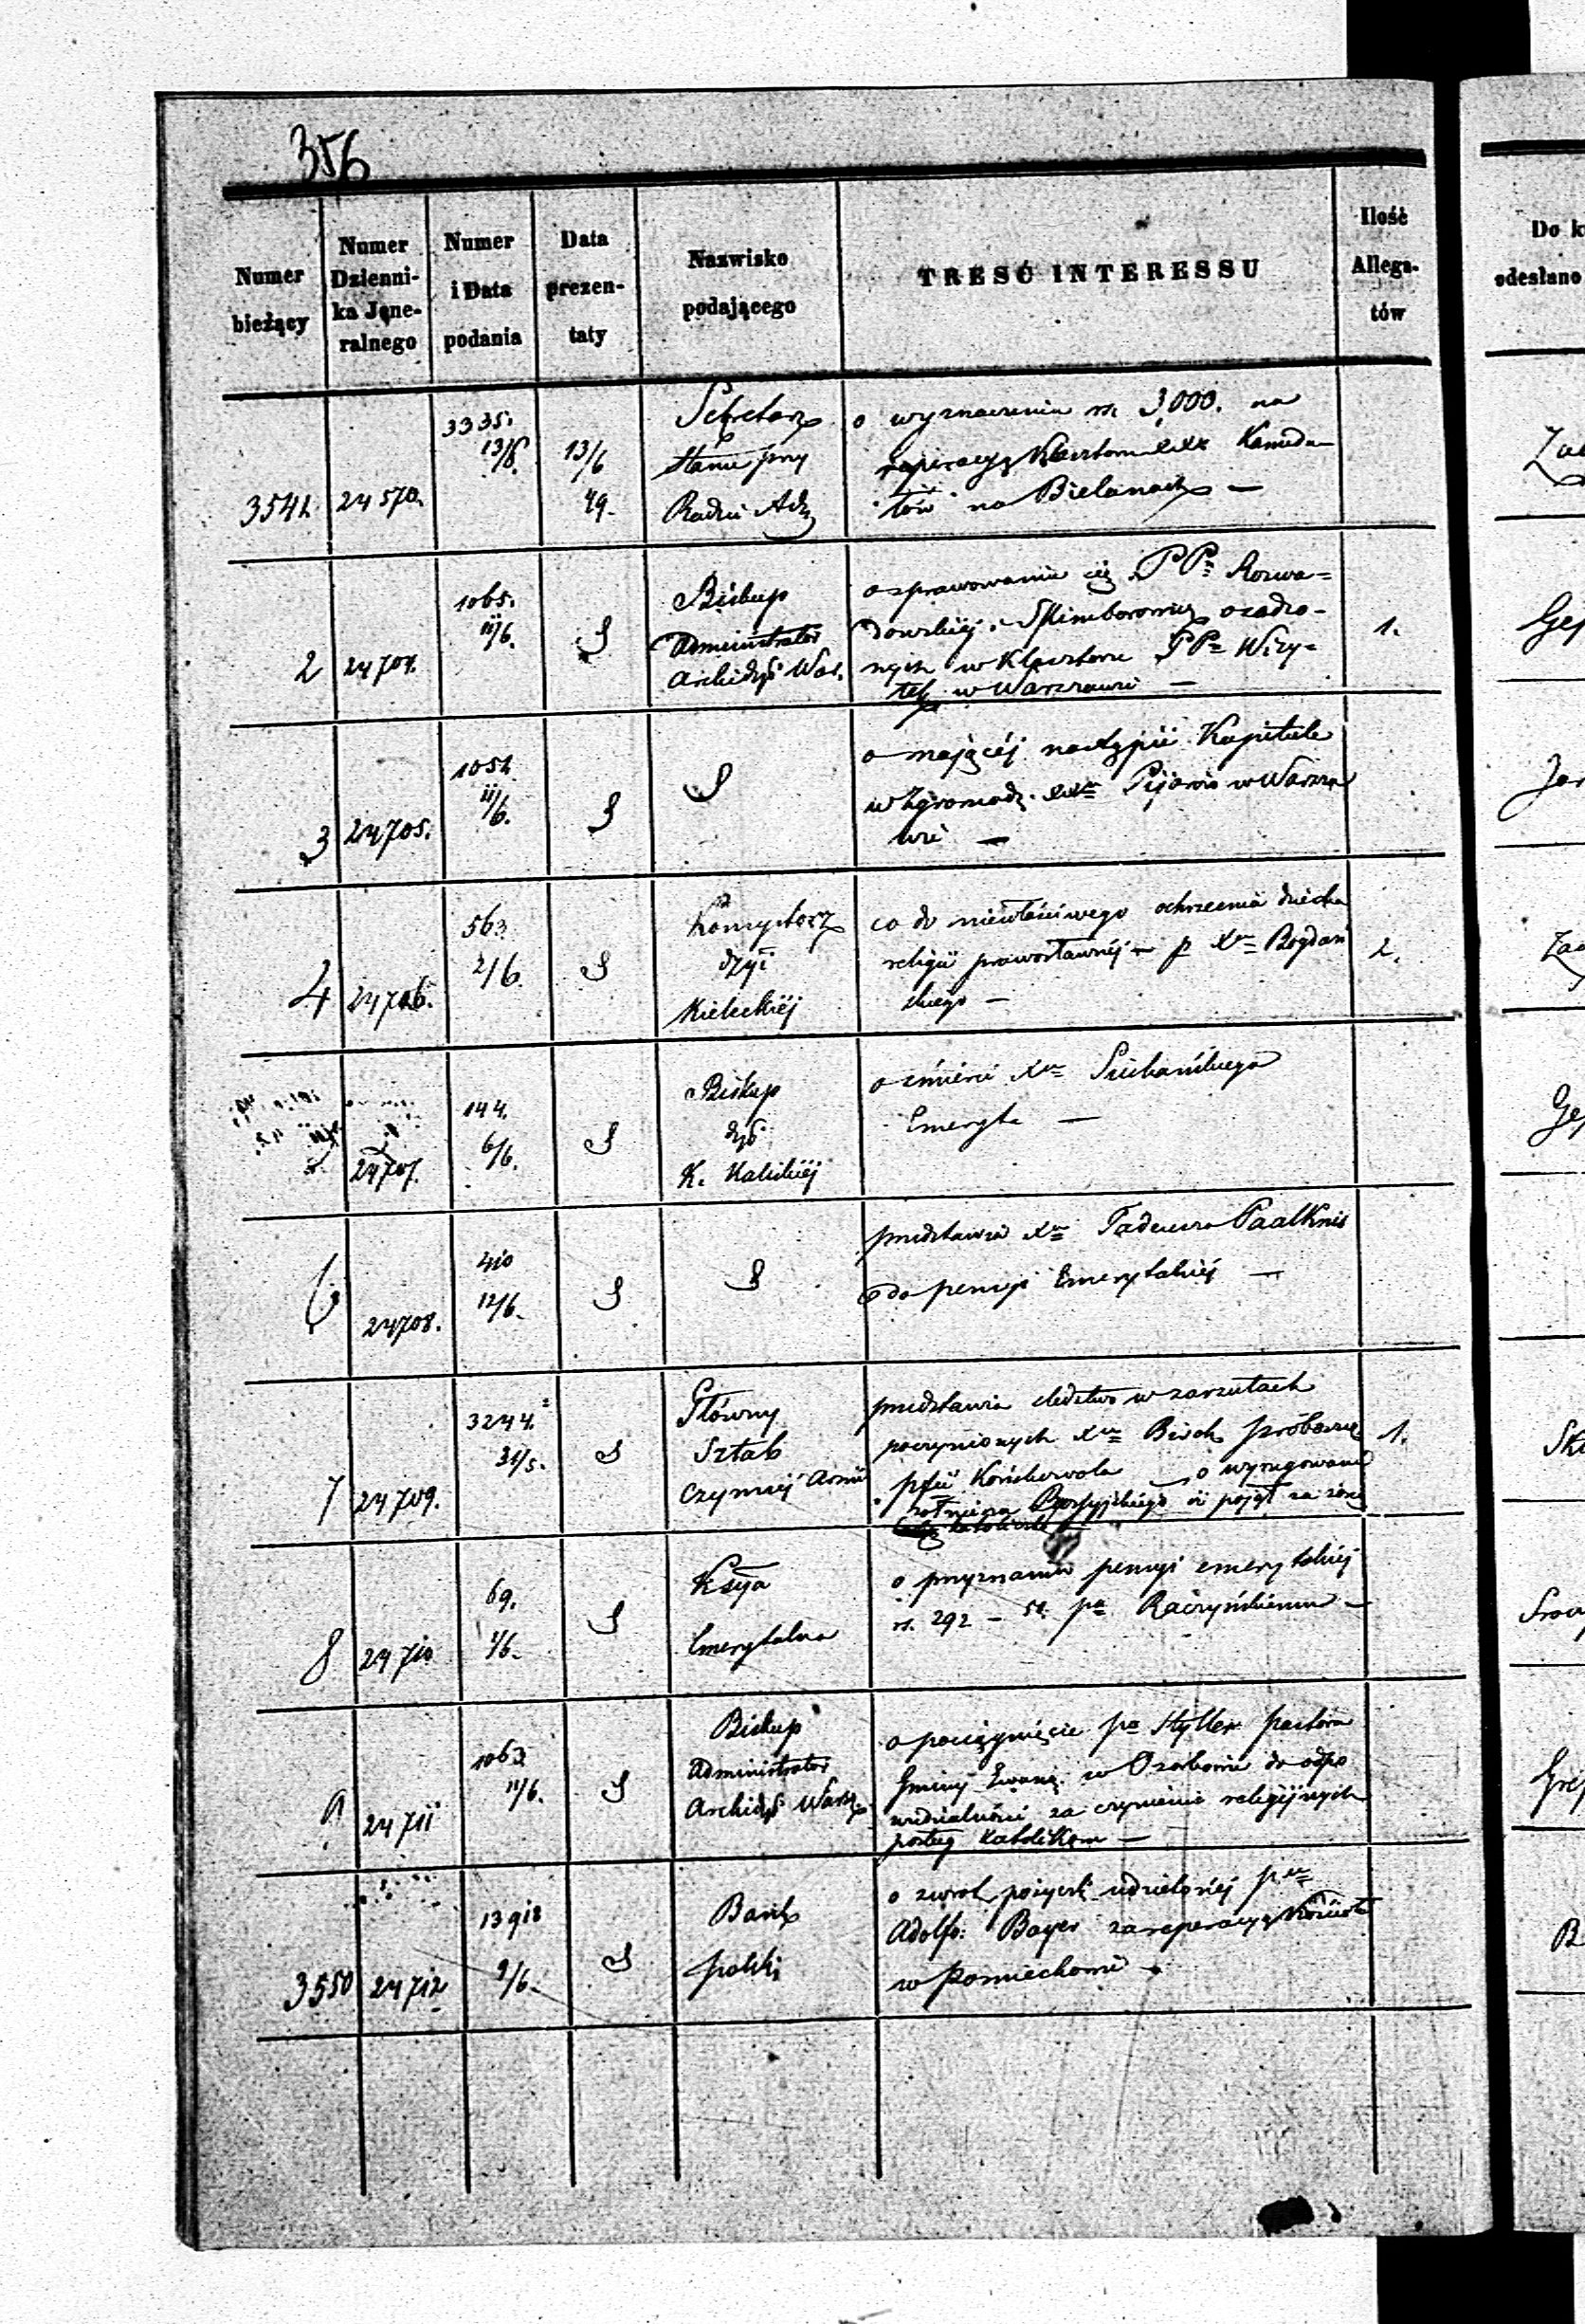 356
Numer bieżący
Numer Dzienni- ka Jene- ralnego
Numer i Data podania
Data prezen- taty
Nazwisko podającego
TREŚĆ INTERESSU
Ilość Allega- tów
Do k
odesłano
3541. 24570. 3335. 13/6. 13/6 49.
Sekretarz
Stanu przy
Radzie Adm
o wyznaczeniu rs. 3,000. na
reperacyą Klasztoru XXX Kamedu-
łów na Bielanach —
2 24704. 1065. 11/6. S
Biskup
Administrator
Archidyś War.
o sprawowaniu się PPn Rozwa=
dowskiéj i Skimborowicz osadzo-
nych w Klasztorze PPn Wizy-
tek w Warszawie —
1.
3 24705. 1051. 11/6. S
S
o mającéj nastąpić Kapitule
w Zgromadz. XXn Pijarów w Warsza
wie —
4 24706. 563. 2/6. S
Konsystorz
dyi
Kieleckiéj
co do niewłaściwego ochrzczenia dziecka
religii prawosławnéj p Xn Bogdań
skiego —
2.
24707. 144. 6/6. S
Biskup
dyś
K. Kaliskiéj
o śmierci Xn
Emeryta —
6 24708. 410 12/6. S
S
przedstawia Xn Tadeusza
do pensyi Emerytalnéj —
7 24709. 3244. 31/5. S
Główny
Sztab
Czynnéj Armii
przedstawia śledztwo w zarzutach
poczynionych Xn proboszcz
pfii Końskowola o wyrugowanie
żołnierza iż pojął za żonę
katoliczkę
1.
8 24710 69. 1/6. S
Kssya
Emerytalna
o przyznaniu pensyi emerytalnéj
rs. 292 – 52. pa Raczyńskiemu —
9 24711 1063. 11/6. S
Biskup
Administrator
Archidyś Warsz.
o pociągnięcie pa pastora
Gminy Ewang. w Ozorkowie do odpo
wiedzialności za czynienie religijnych
posług Katolikom —
3550 24712 13912 9/6. S
Bank
polski
o zwrot pożyczki udzielonéj pn
Adolfo: Bayer za reperacyą Kościoła
w Pomiechowie